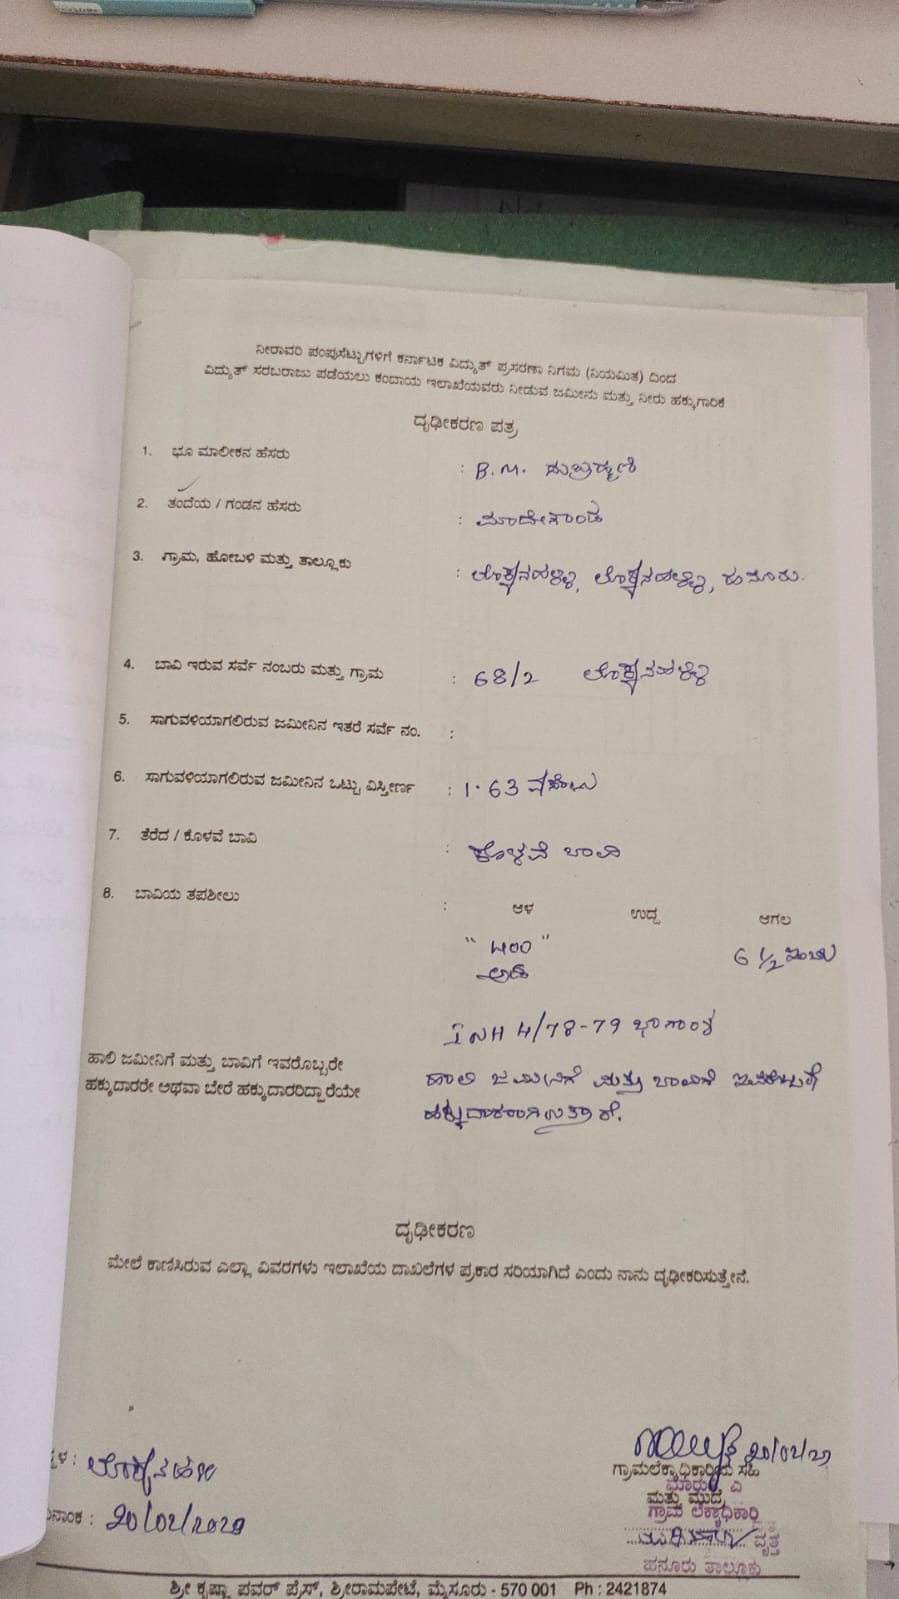 ನೀರಾವರಿ ಪಂಪುಸೆಟ್ಟುಗಳಿಗೆ ಕರ್ನಾಟಕ ವಿದ್ಯುತ್ ಪ್ರಸರಣಾ ನಿಗಮ (ನಿಯಮಿತ) ದಿಂದ
ವಿದ್ಯುತ್ ಸರಬರಾಜು ಪಡೆಯಲು ಕಂದಾಯ ಇಲಾಖೆಯವರು ನೀಡುವ ಜಮೀನು ಮತ್ತು ನೀರು ಹಕ್ಕುಗಾರಿಕೆ
ದೃಢೀಕರಣ ಪತ್ರ
1. ಭೂ ಮಾಲೀಕನ ಹೆಸರು : B.M. ಸುಬ್ರಹ್ಮಣಿ
2. ತಂದೆಯ / ಗಂಡನ ಹೆಸರು : ಮಾದೇಗೌಂಡ
3. ಗ್ರಾಮ, ಹೋಬಳಿ ಮತ್ತು ತಾಲ್ಲೂಕು : ಲೊಕ್ಕನಹಳ್ಳಿ, ಲೊಕ್ಕನಹಳ್ಳಿ, ಹನೂರು.
4. ಬಾವಿ ಇರುವ ಸರ್ವೆ ನಂಬರು ಮತ್ತು ಗ್ರಾಮ : 68/2 ಲೊಕ್ಕನಹಳ್ಳಿ
5. ಸಾಗುವಳಿಯಾಗಲಿರುವ ಜಮೀನಿನ ಇತರೆ ಸರ್ವೆ ನಂ. :
6. ಸಾಗುವಳಿಯಾಗಲಿರುವ ಜಮೀನಿನ ಒಟ್ಟು ವಿಸ್ತೀರ್ಣ : 1.63
7. ತೆರೆದ / ಕೊಳವೆ ಬಾವಿ : ಕೊಳವೆ ಬಾವಿ
8. ಬಾವಿಯ ತಪಶೀಲು : ಆಳ ಉದ್ದ ಅಗಲ
6 1/2 ಇಂಚು
ಅಡಿ
4/78-79
ಹಾಲಿ ಜಮೀನಿಗೆ ಮತ್ತು ಬಾವಿಗೆ ಇವರೊಬ್ಬರೇ ಹಾಲಿ ಜಮೀನಿಗೆ ಮತ್ತು ಬಾವಿಗೆ ಇವರೊಬ್ಬರೇ
ಹಕ್ಕುದಾರರೇ ಅಥವಾ ಬೇರೆ ಹಕ್ಕುದಾರರಿದ್ದಾರೆಯೇ ಹಕ್ಕುದಾರರಾಗಿರುತ್ತಾರೆ.
ದೃಢೀಕರಣ
ಮೇಲೆ ಕಾಣಿಸಿರುವ ಎಲ್ಲಾ ವಿವರಗಳು ಇಲಾಖೆಯ ದಾಖಲೆಗಳ ಪ್ರಕಾರ ಸರಿಯಾಗಿದೆ ಎಂದು ನಾನು ದೃಢೀಕರಿಸುತ್ತೇನೆ.
ಗ್ರಾಮಲೆಕ್ಕಾಧಿಕಾರಿಯ ಸಹಿ
ಮತ್ತು ಮುದ್ರೆ
ಗ್ರಾಮ ಲೆಕ್ಕಾಧಿಕಾರಿ
ವೃತ್ತ
ಹನೂರು ತಾಲ್ಲೂಕು
ಶ್ರೀ ಕೃಷ್ಣಾ ಪವರ್ ಪ್ರೆಸ್, ಶ್ರೀರಾಮಪೇಟೆ, ಮೈಸೂರು - 570 001 Ph : 2421874